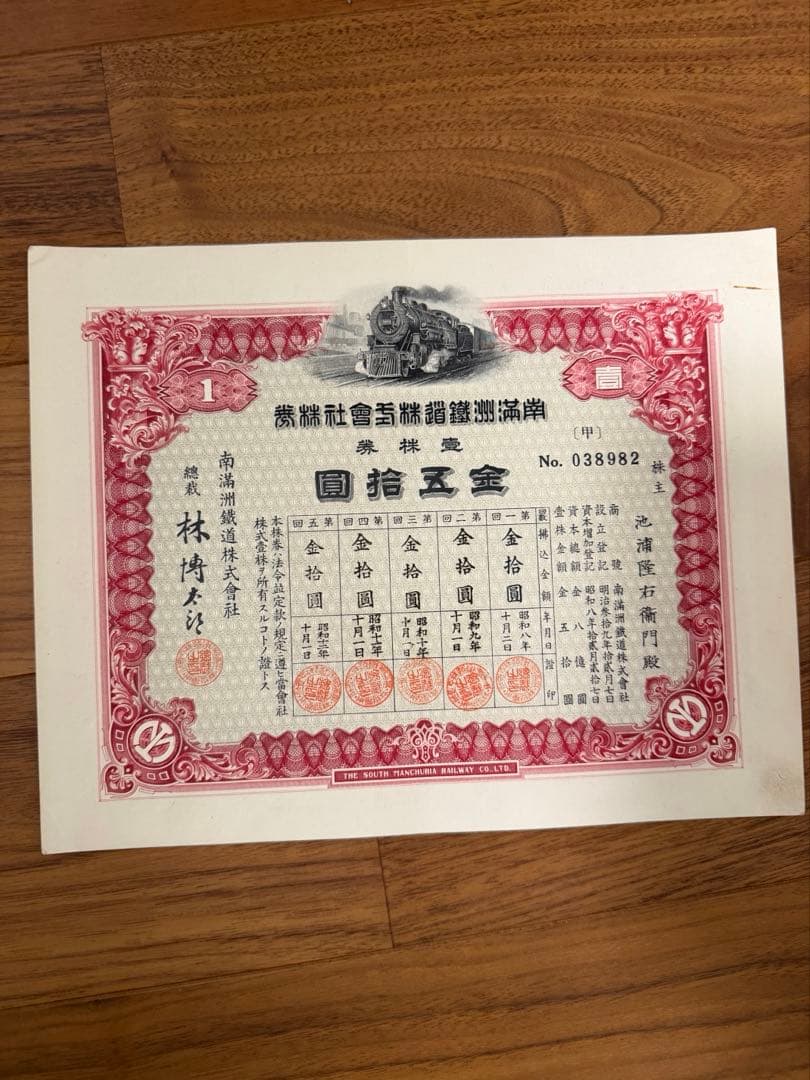 1
壹
南滿洲鐵道株式會社株券
壹株券
〔甲〕
金五拾圓
No. 038982
株主
池浦隆右衞門殿
商號 南滿洲鐵道株式會社
設立登記 明治叁拾九年拾貳月七日
資本增加登記 昭和八年拾貳月貳拾七日
資本總額 金八億圓
壹株金額 金五拾圓
拂込金額
年月日
證印
第一回
金拾圓
昭和八年
十月二日
第二回
金拾圓
昭和九年
十月一日
第三回
金拾圓
昭和十年
十月一日
第四回
金拾圓
昭和十一年
十月一日
第五回
金拾圓
昭和十二年
十月一日
本株券ハ法令竝定款ノ規定ニ遵ヒ當會社
株式壹株ヲ所有スルコトノ證トス
南滿洲鐵道株式會社
總裁
林博太郎
THE SOUTH MANCHURIA RAILWAY CO., LTD.